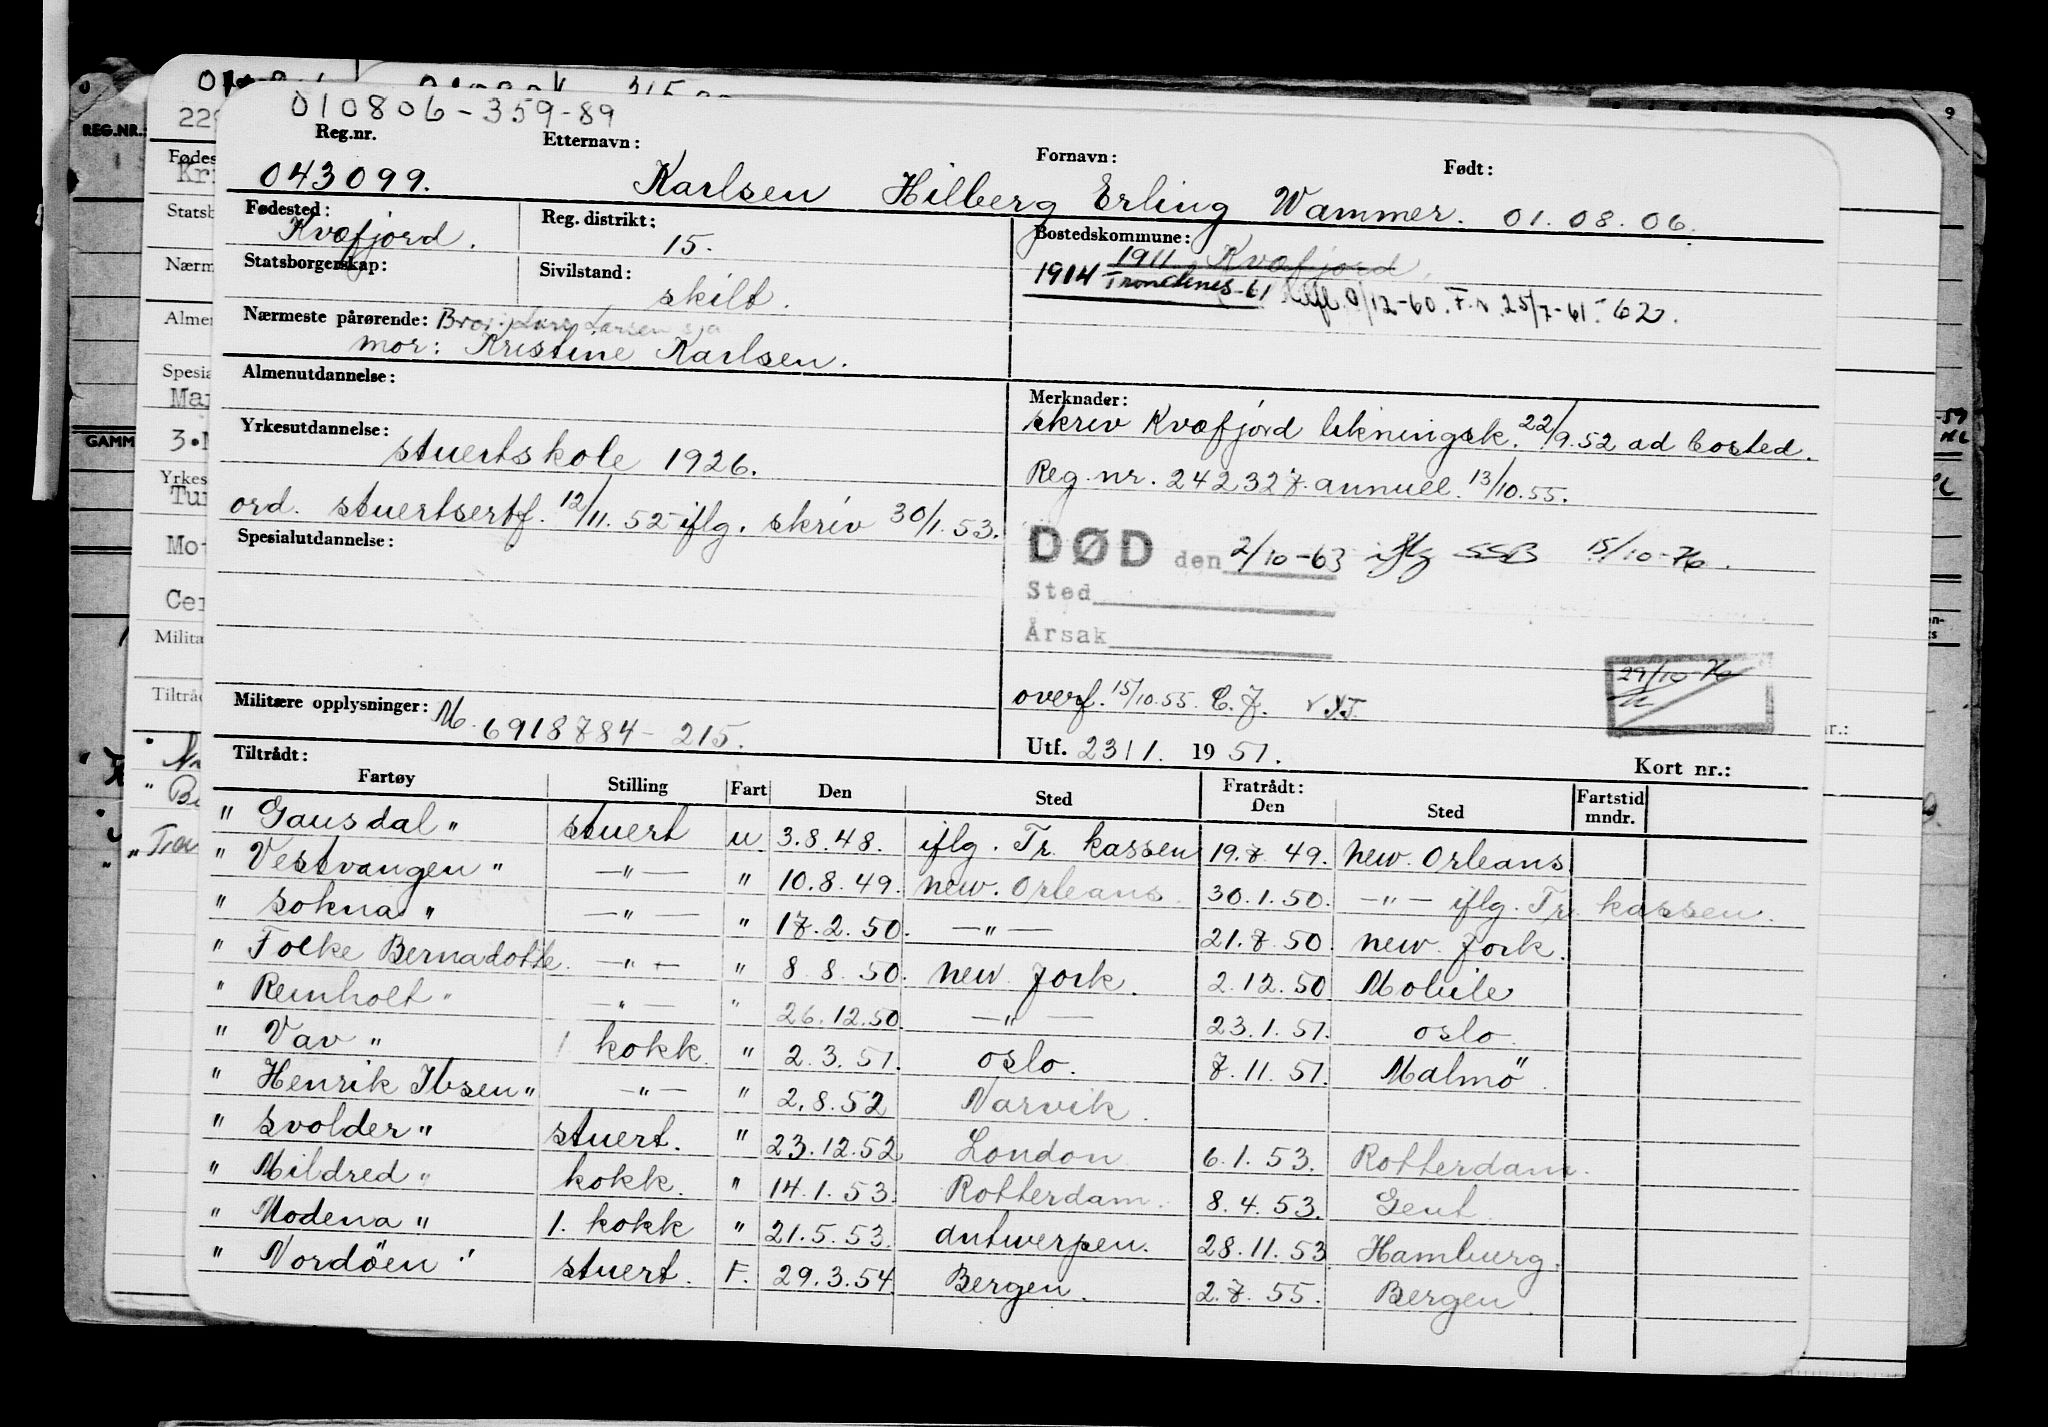 010806-359-89
Reg.nr. Etternavn: Fornavn: Født:
043099. Karlsen Hilberg Erling Wammer. 01.08.06.
Fødested: Kvæfjord. Reg. distrikt: 15. Bostedskommune:
1911 Kvæfjord
1914 Trondenes-61 9/12-60. F.v. 25/7-61-62.
Statsborgerskap: Sivilstand: skilt.
Nærmeste pårørende: Bror: Lars Larsen
mor: Kristine Karlsen.
Almenutdannelse:
Yrkesutdannelse:
stuertskole 1926.
ord. stuertsertf. 12/11.52 iflg. skriv 30/1.53.
Spesialutdannelse:
Merknader:
skriv Kvæfjord likningsk. 22/9.52 ad bosted.
Reg. nr. 242327 annuel. 13/10.55.
DØD den 2/10-63 iflg SSB 15/10-76.
Sted
Årsak
29/10-76
overf. 15/10.55. C.J.
Militære opplysninger: M. 6918784-215.
Utf. 23/1. 1951.
Kort nr.:
Tiltrådt: Fratrådt:
Fartøy Stilling Fart Den Sted Den Sted Fartstid mndr.
" Gausdal " stuert u. 3.8.48. iflg. Tr. kassen 19.7.49. New. Orleans
" Vestvangen " —"— " 10.8.49. New. Orleans. 30.1.50. —"— iflg. Tr. kassen.
" Sokna " —"— " 17.2.50. —"— 21.7.50. New. Jork.
" Folke Bernadotte —"— " 8.8.50. New Jork. 2.12.50 Mobile
" Reinholt " —"— " 26.12.50. —"— 23.1.51. Oslo.
" Vav " 1 kokk. " 2.3.51. Oslo. 7.11.51. Malmö.
" Henrik Ibsen " —"— " 2.8.52 Narvik.
" Svolder " stuert. " 23.12.52 London 6.1.53. Rotterdam.
" Mildred " kokk. " 14.1.53. Rotterdam. 8.4.53. Gent.
" Modena " 1. kokk " 21.5.53. Antwerpen. 28.11.53. Hamburg.
" Nordöen " stuert. F. 29.3.54. Bergen. 2.7.55. Bergen.